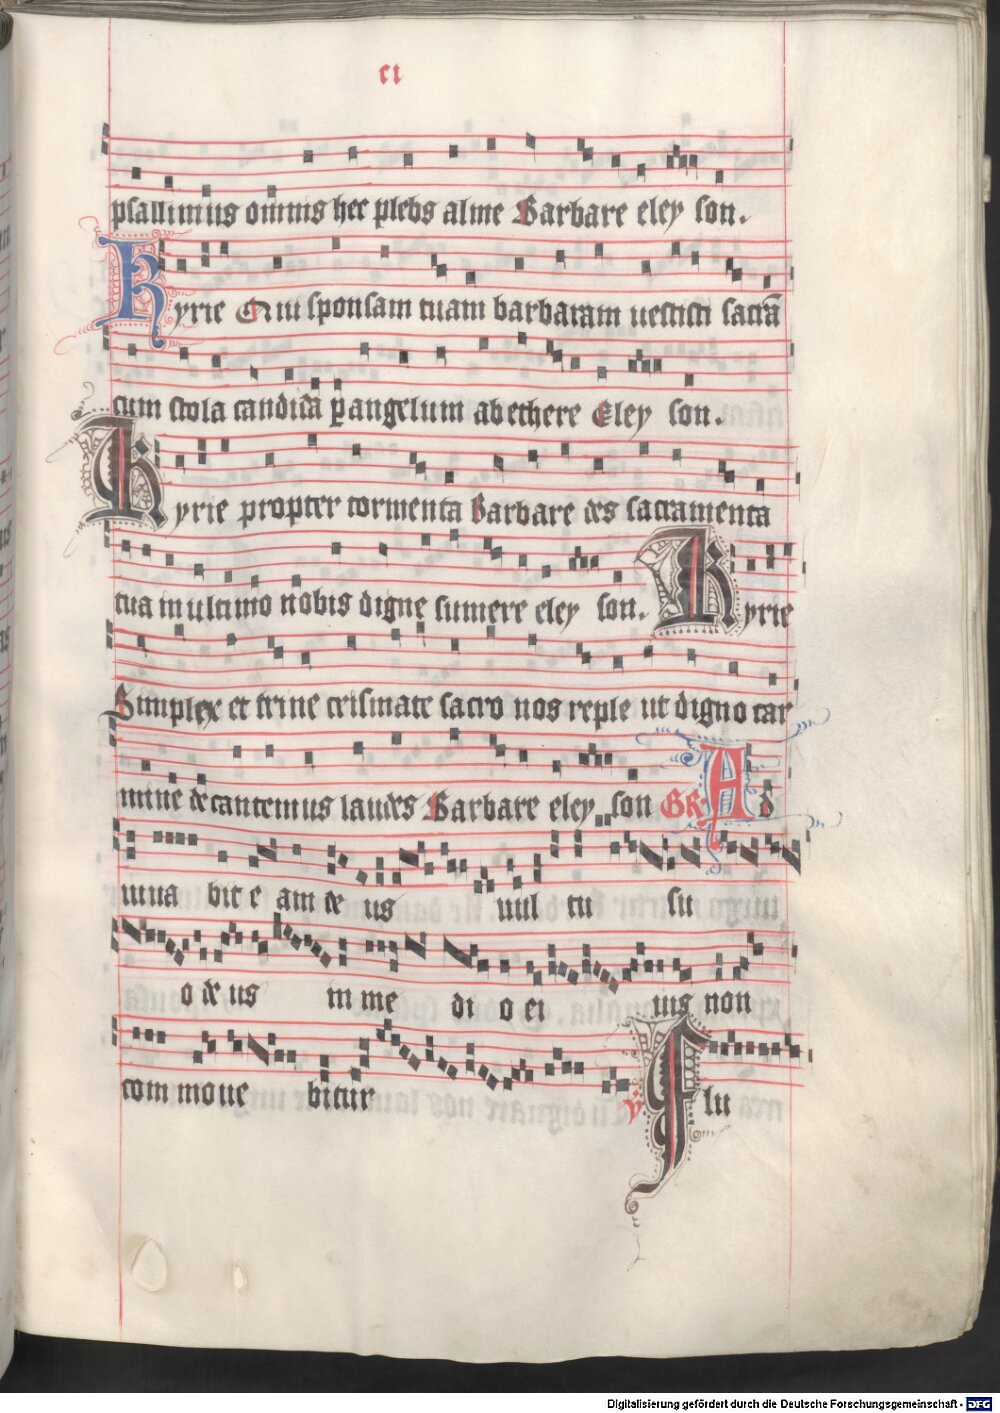 ci
psallimus omnis hec plebs alme Barbare eley son.
Kyrie Qui sponsam tuam barbaram uestisti sacrā
cum stola candida ꝑ angelum ab ethere Eley son.
Kyrie propter tormenta Barbare des sacramenta
tua in ultimo nobis digne sumere eley son. Kyrie
Simplex et trine crismate sacro nos reple ut digno car
mine decantemus laudes Barbare eley son GR Ad
iuua bit e am de us uul tu su
o de us in me di o ei ius non
com moue bitur ꝟ Flu
Digitalisierung gefördert durch die Deutsche Forschungsgemeinschaft - DFG